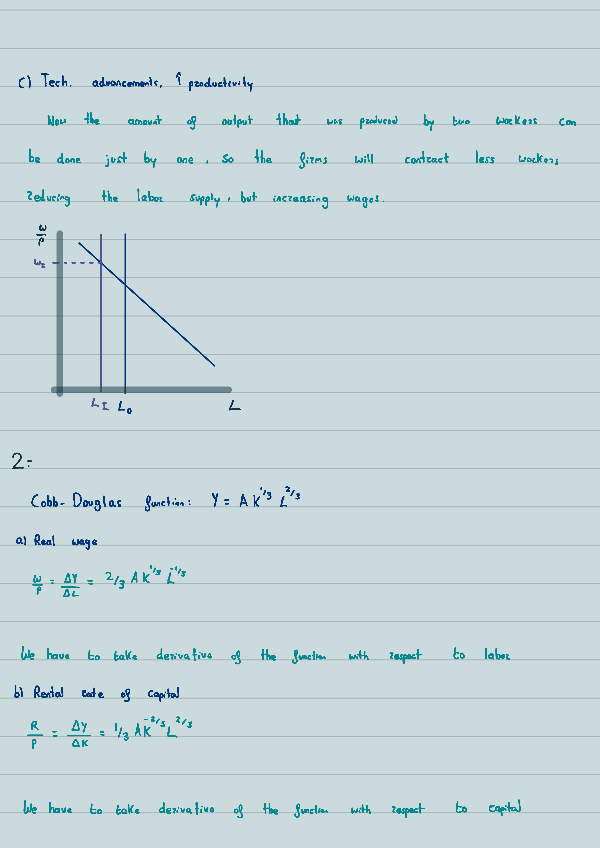 c) Tech. advancements, ↑ productivity
Now the amount of output that was produced by two workers can
be done just by one, so the firms will contract less workers
reducing the labor supply, but increasing wages.
W/P
W₁
L₁ L₀ L
2:
Cobb-Douglas function: Y = A K^1/3 L^2/3
a) Real wage
W/P = ΔY/ΔL = 2/3 A K^1/3 L^-1/3
We have to take derivative of the function with respect to labor
b) Rental rate of capital
R/P = ΔY/ΔK = 1/3 A K^-2/3 L^2/3
We have to take derivative of the function with respect to capital